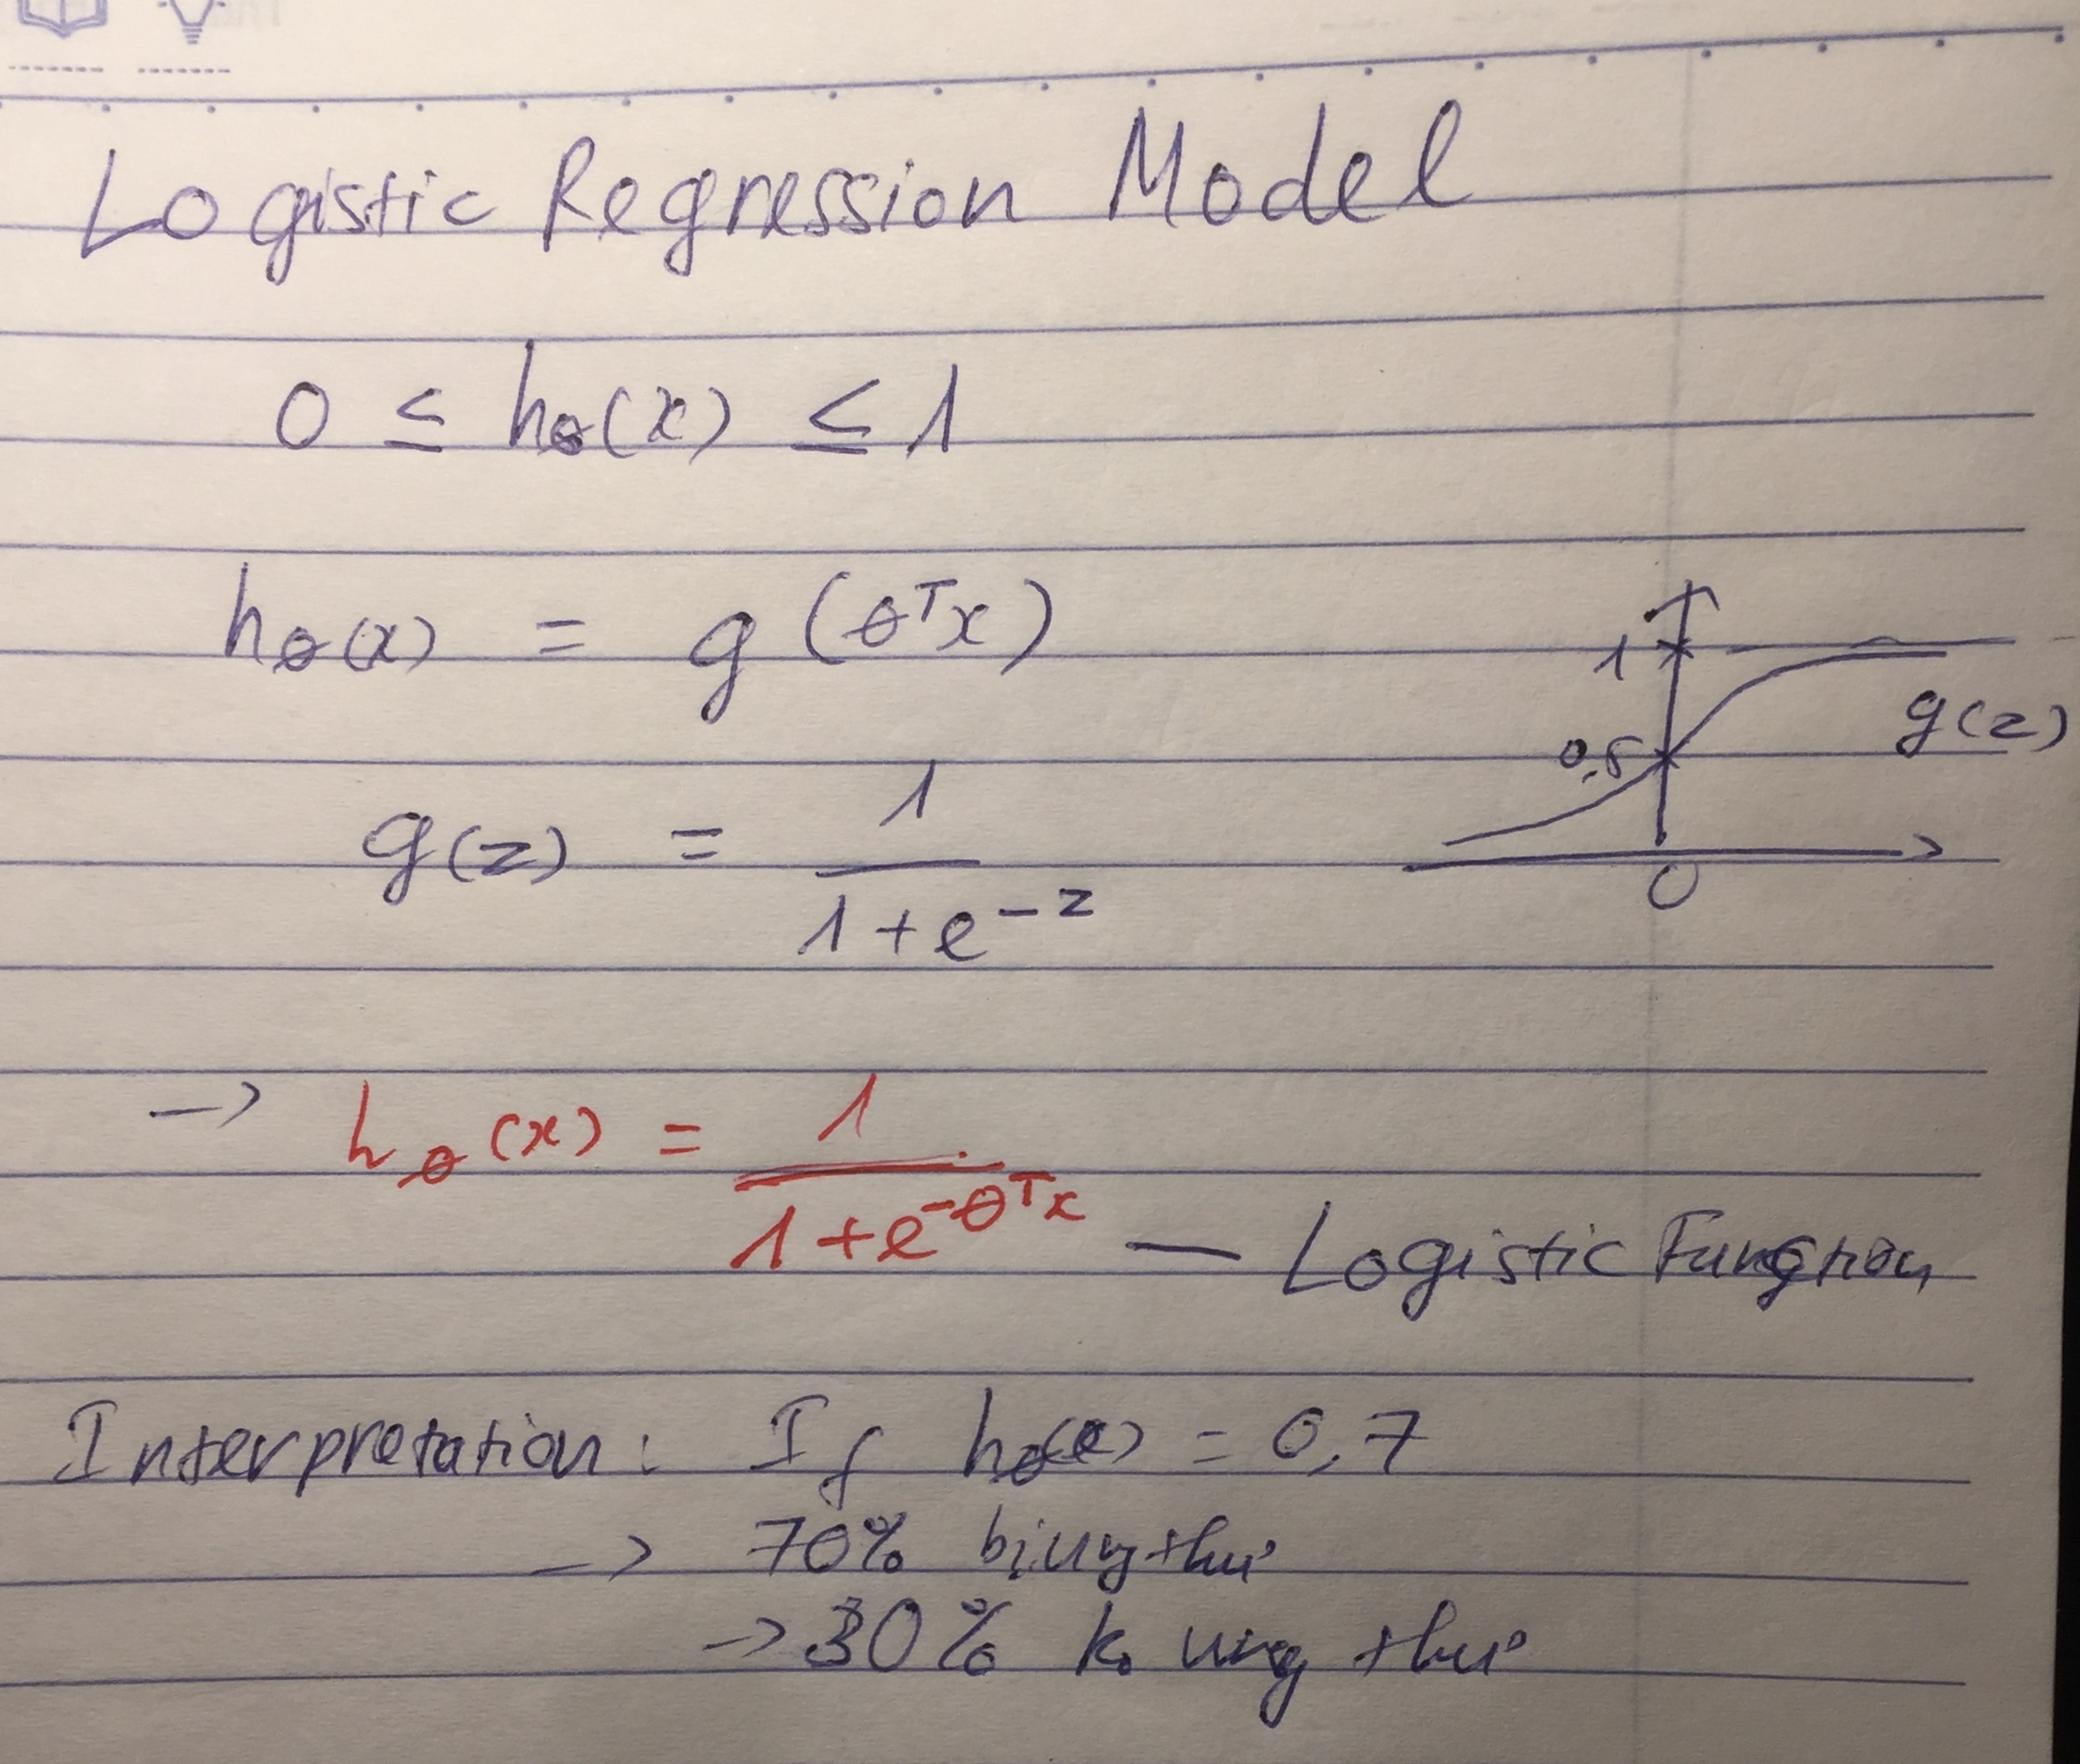 Logistic Regression Model
0 ≤ hθ(x) ≤ 1
hθ(x) = g(θᵀx)
1
0,5
g(z)
0
g(z) = 1 / (1+e^-z)
→ hθ(x) = 1 / (1+e^-θᵀx) — Logistic Function
Interpretation: If hθ(x) = 0,7
→ 70% bị ung thư
→ 30% k. ung thư